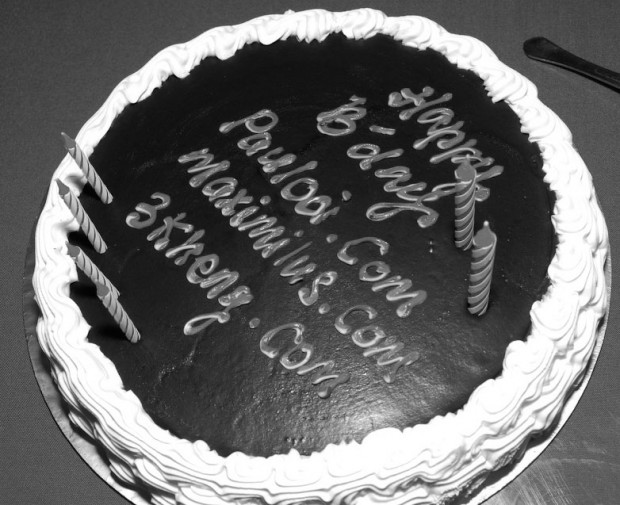 Happy
B-day
Paulooi.Com
Maximilus.Com
3Kheng.Com